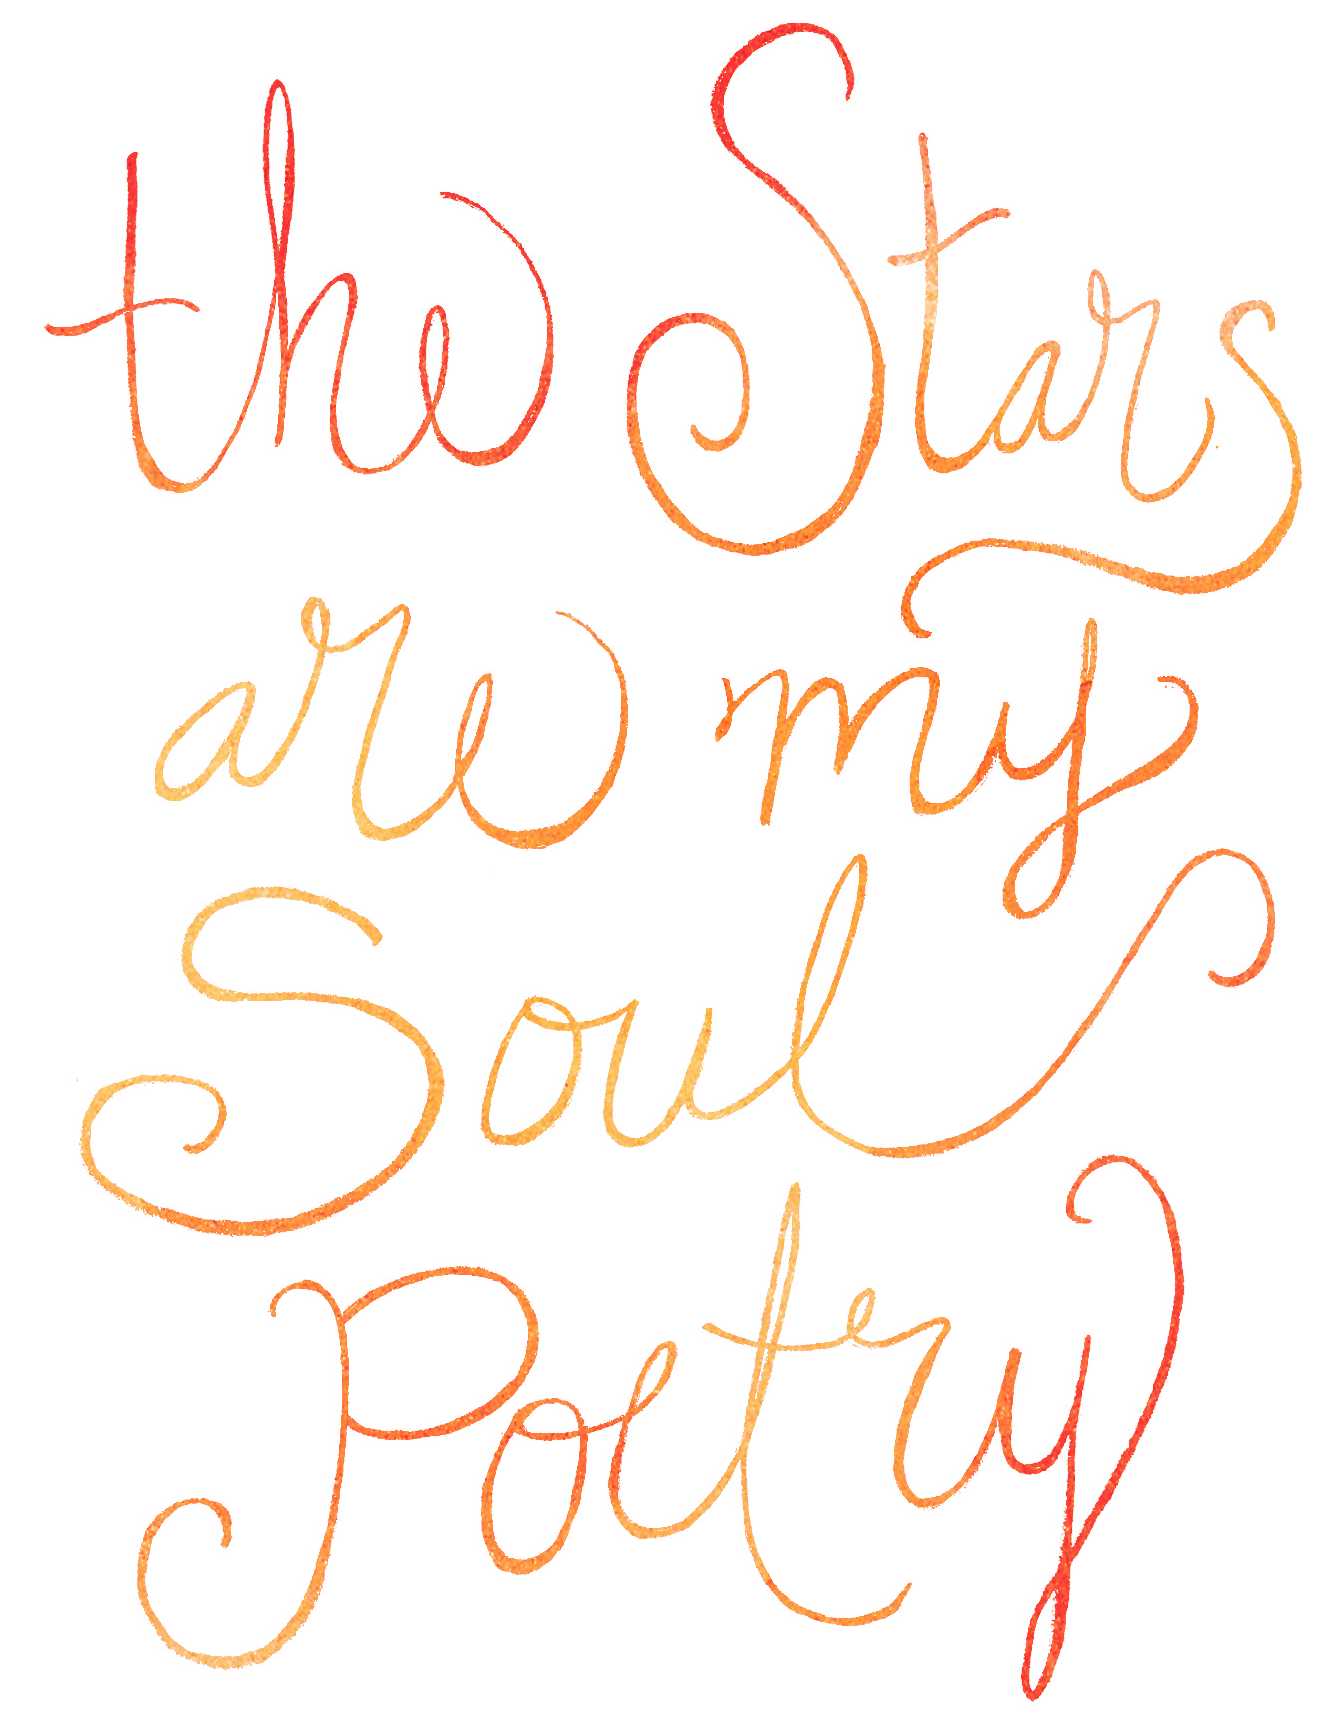 the Stars
are my
Soul
Poetry